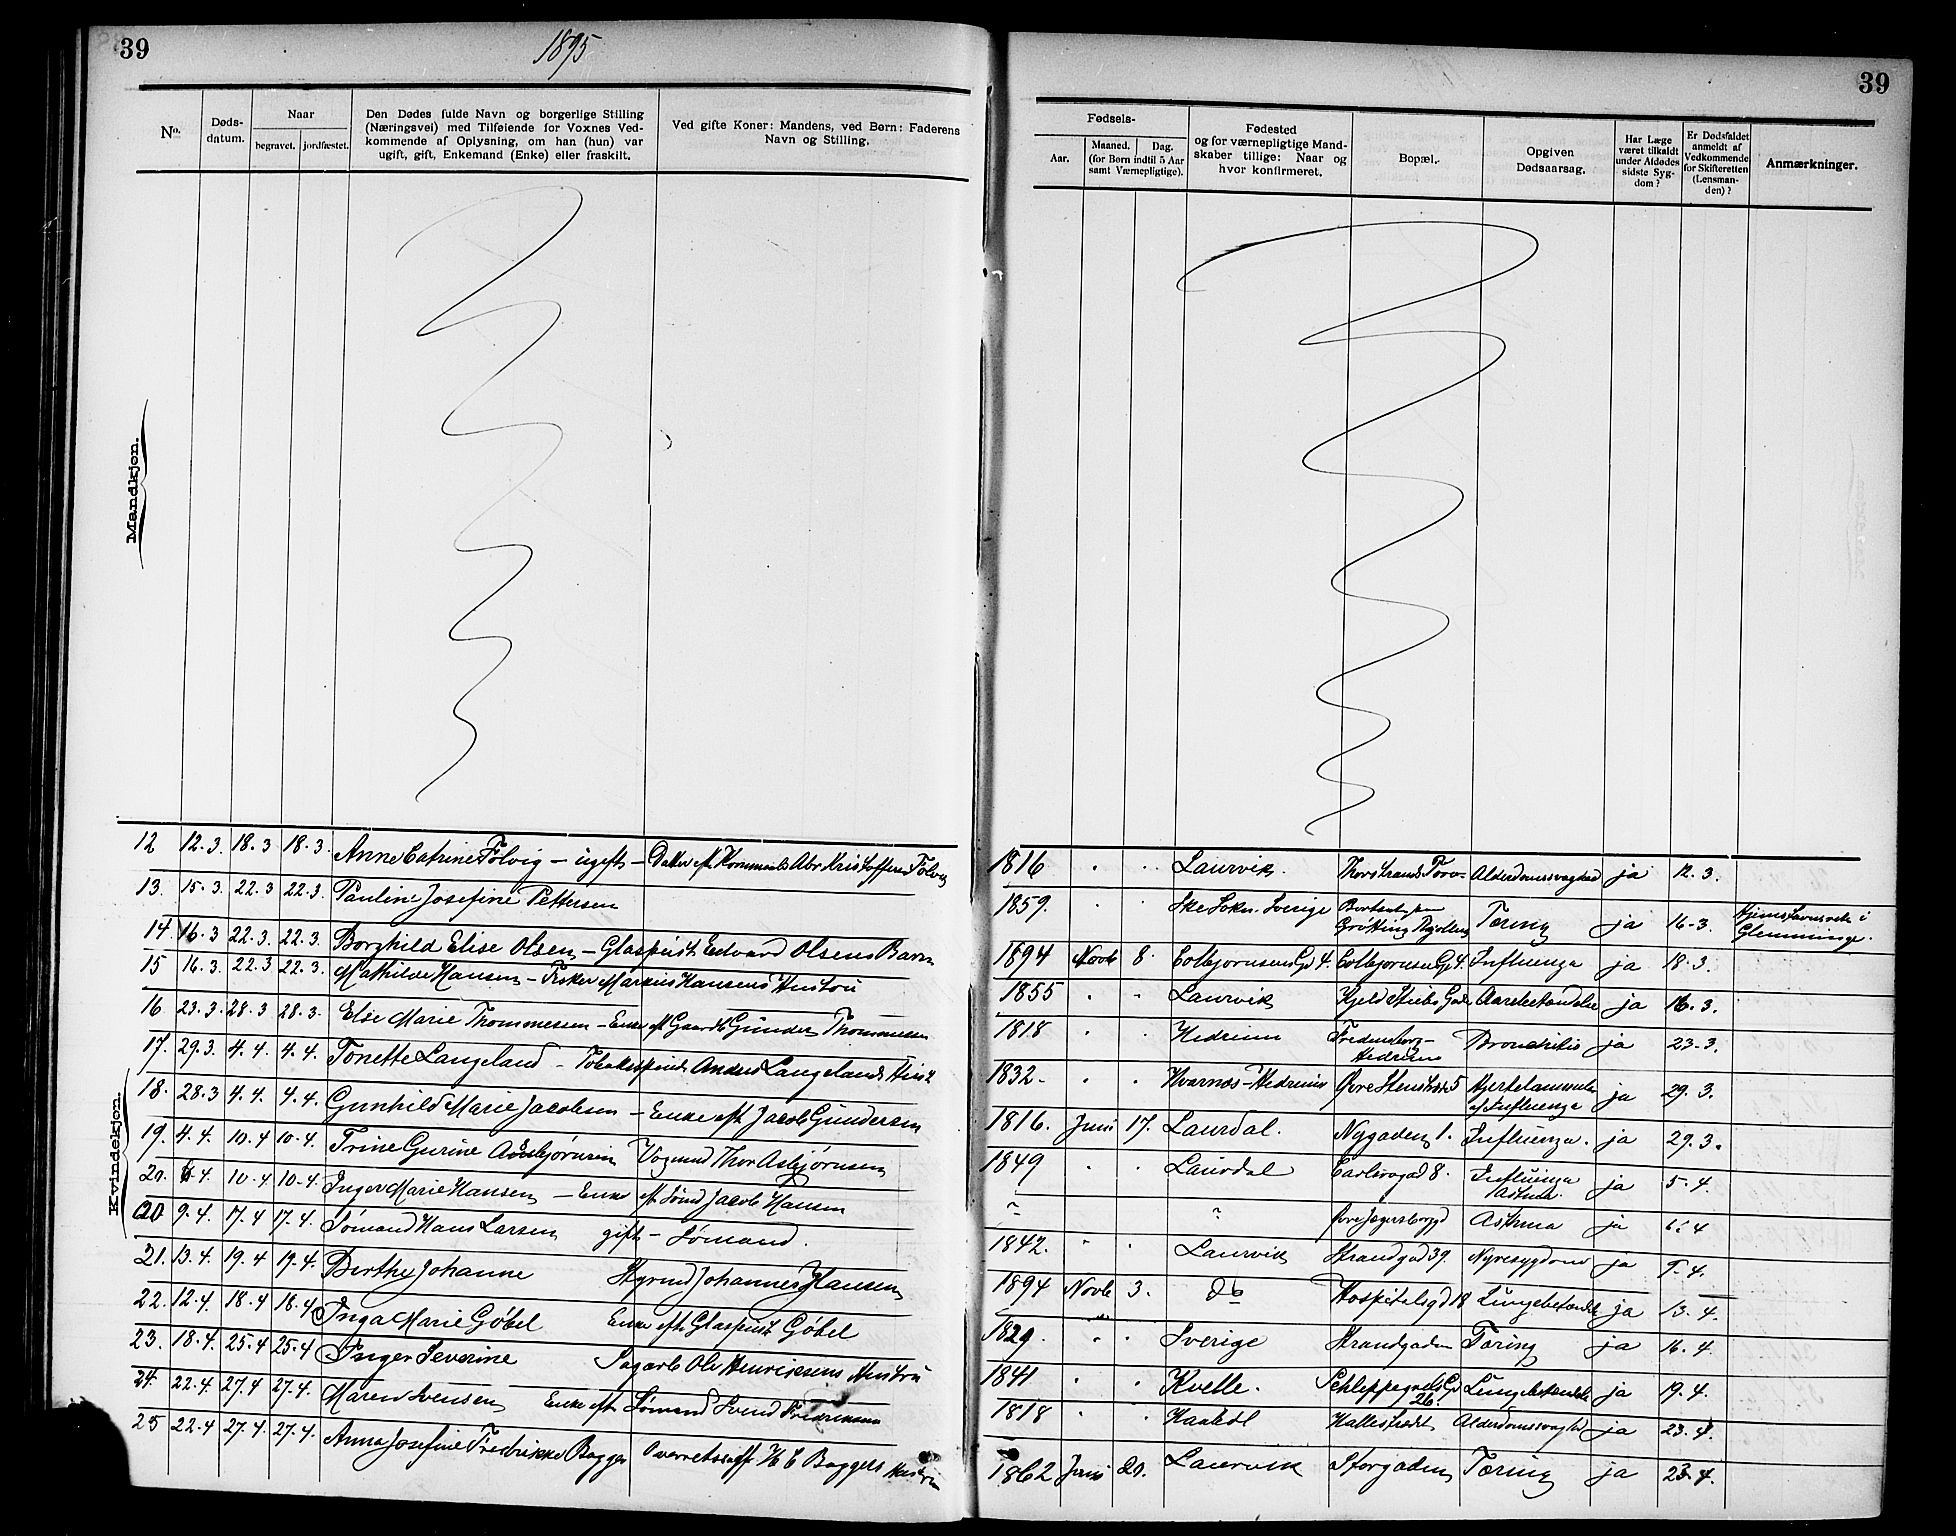 39
1895
39
No.
Døds-
datum.
Naar
begravet.
jordfæstet.
Den Dødes fulde Navn og borgerlige Stilling
(Næringsvei) med Tilføiende for Voxnes Ved-
kommende af Oplysning, om han (hun) var
ugift, gift, Enkemand (Enke) eller fraskilt.
Ved gifte Koner: Mandens, ved Børn: Faderens
Navn og Stilling.
Fødsels-
Aar.
Maaned.
Dag.
(for Børn indtil 5 Aar
samt Værnepligtige).
Fødested
og for værnepligtige Mand-
skaber tillige: Naar og
hvor konfirmeret.
Bopæl.
Opgiven
Dødsaarsag.
Har Læge
været tilkaldt
under Afdødes
sidste Syg-
dom?
Er Dødsfaldet
anmeldt af
Vedkommende
for Skifteretten
(Lensman-
den)?
Anmærkninger.
Mandkjøn.
Kvindekjøn.
12 12.3. 18.3 18.3. Anne Catrine Folvig - ugift - Datter af Abr. Kristoffersen Folvig 1816 Laurvik. Alderdomssvaghed ja 12.3.
13. 15.3. 22.3 22.3. Pauline Josefine Pettersen 1859. Ske Sokn. Sverige Tæring ja 16.3. Hjemstavnsret i Glemminge.
14. 16.3 22.3. 22.3. Borghild Elise Olsen - Glaspust. Edvard Olsens Barn 1894 Novb 8. Colbjørnsens Gd 4. Colbjørnsens Gd 4. Influenza ja 18.3.
15 16.3. 22.3 22.3. Mathilde Hansen - Fisker Markus Hansens Hustru 1855 Laurvik Kjeld Stubs Gade Aarebetændelse ja 16.3.
16 23.3. 28.3 28.3. Else Marie Thommesen - Enke af Gaardb. Gunder Thommesen 1818 Hedrum Fredensborg - Hedrum Bronchitis ja 23.3.
17. 29.3. 4.4. 4.4. Tonette Langeland - Tobaksspind. Anders Langelands Hust. 1832. Kvarnæs - Hedrum Øvre 5 af Influenza ja 29.3.
18. 28.3 4.4. 4.4. Gunhild Marie Jacobsen - Enke eft Jacob Gundersen 1816. Juni 17. Laurdal. Nygaden 1. Influenza. ja 29.3.
19. 4.4. 10.4 10.4. Trine Gurine Asbjørnsen Vognmd Thor Asbjørnsen 1849 Laurdal 8. Influenza Asthma. ja 5.4.
20. 6.4. 10.4 10.4. Inger Marie Hansen - Enke af Sømd Jacob Hansen " " Øvre Jegersborggd Asthma ja 6.4
20 9.4. 17.4 17.4. Sømand Hans Larsen gift - Sømand. 1842. Laurvik Strandgad 39. Nyresygdom ja 9.4.
21. 13.4. 19.4 19.4. Berthe Johanne Styrmd Johannes Hansen 1894 Novb 3. do Hospitalsgd 18 Lungebetændelse ja 13.4.
22. 12.4. 18.4 18.4 Inga Marie Göbel Enke eft Glaspust. Göbel 1829. Sverige Strandgaden Tæring ja 16.4.
23. 18.4. 25.4 25.4 Inger Severine Sagarb. Ole Henriksens Hustru 1841 Kvelle. Schleppegrels Gd 26. Lungebetændelse ja 19.4.
24. 22.4. 27.4 27.4. Maren Svensen Enke eft Sømand Svend Fredriksen 1818 Hallestedet Alderdomssvaghed ja 23.4.
25 22.4 27.4. 27.4. Anna Josefine Fredrikke Bagger Overretssagf. H C Baggers Hustru 1862 Juni 20. Laurvik Storgaden Tæring ja 23.4.